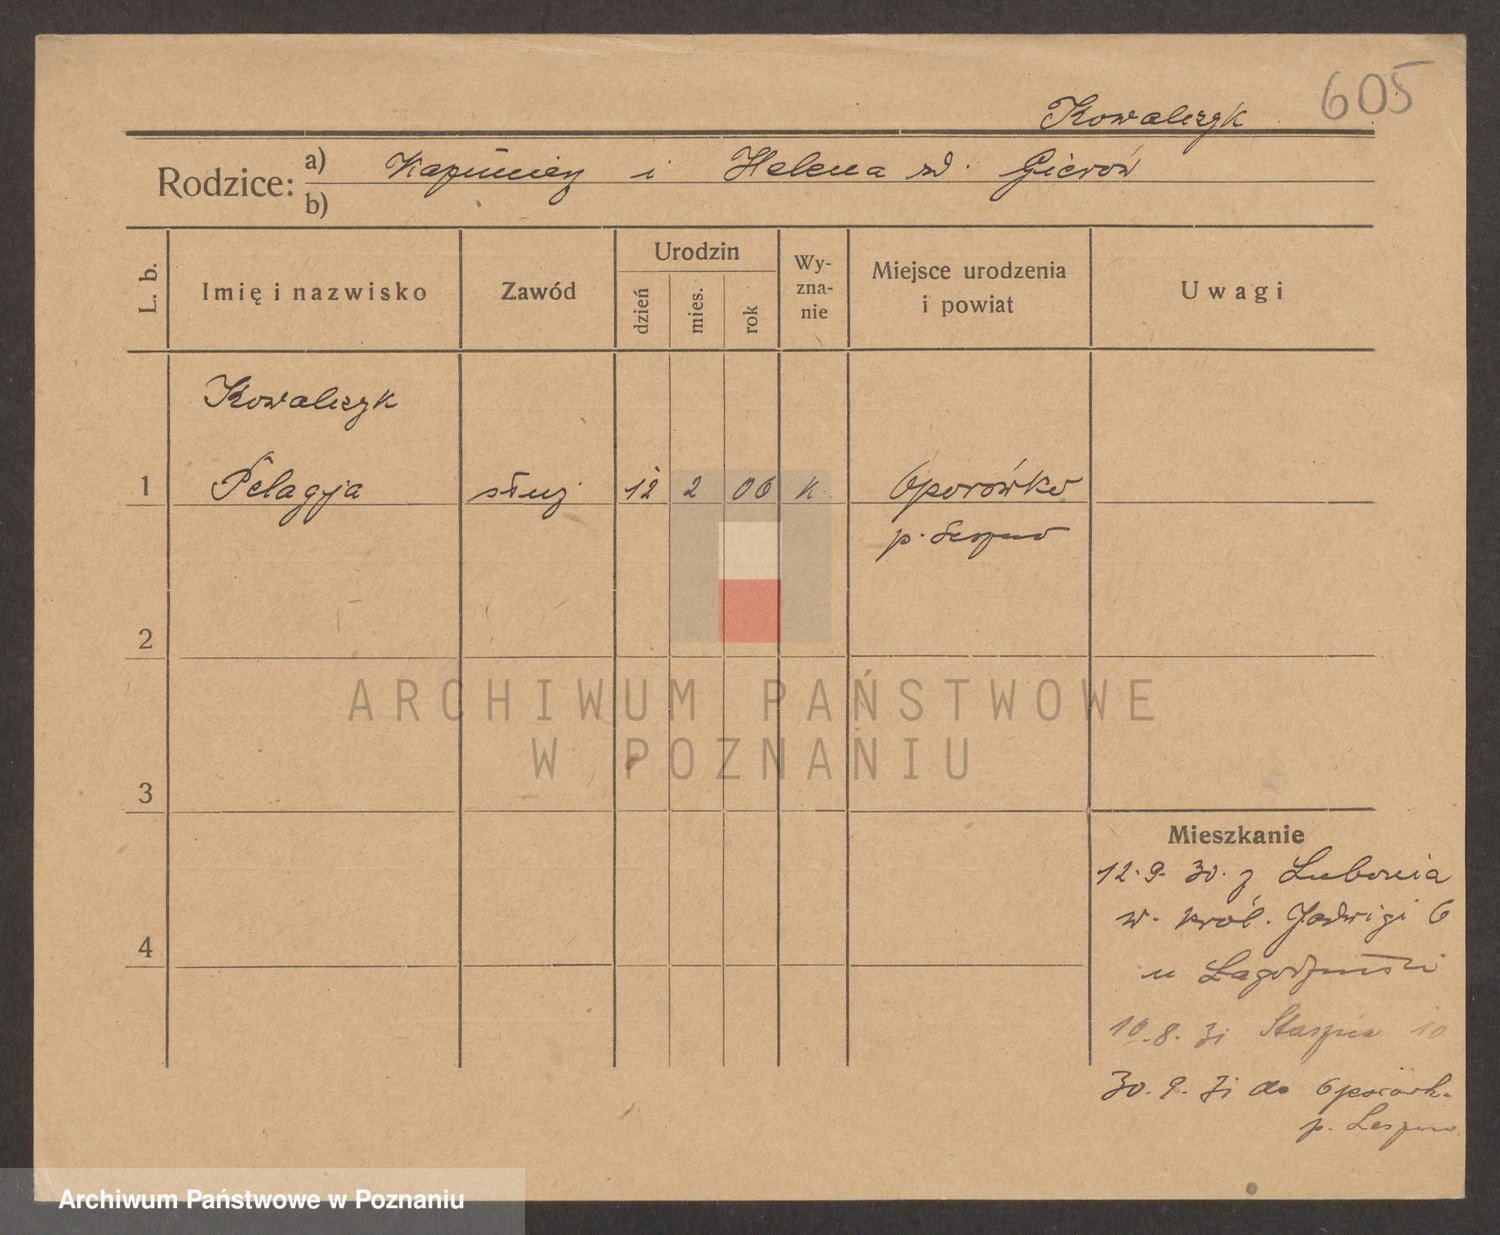 605
Kowalczyk
Rodzice: a) Kazimierz i Helena zd. Gierów
b)
L. b. Imię i nazwisko Zawód Urodzin dzień mies. rok Wyznanie Miejsce urodzenia i powiat Uwagi
Kowalczyk
1 Pelagja służ 12 2 06 k. Oporówko
p. Leszno
2
ARCHIWUM PAŃSTWOWE
W POZNANIU
3
Mieszkanie
12. 9. 30. z Lubonia
w. król. Jadwigi 6
4
u
10. 8. 31 Staszica 10
30. 9. 31 do Oporówk.
p. Leszno
Archiwum Państwowe w Poznaniu